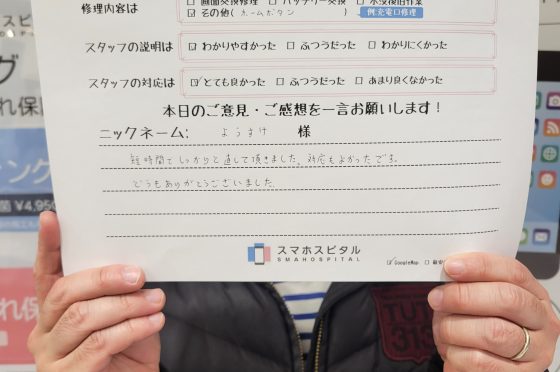 修理内容は
□ 画面交換修理 □ バッテリー交換 □ 水没復旧作業
☑ その他（ホームボタン） 例:充電口修理
スタッフの説明は ☑ わかりやすかった □ ふつうだった □ わかりにくかった
スタッフの対応は ☑ とても良かった □ ふつうだった □ あまり良くなかった
本日のご意見・ご感想を一言お願いします！
ニックネーム: ようすけ 様
短時間でしっかりと直して頂きました。対応もよかったです。
どうもありがとうございました。
スマホスピタル
SMAHOSPITAL
☑ GoogleMap
スピタル
グ
れ保
ング
¥4,950
れ保
TUT
313